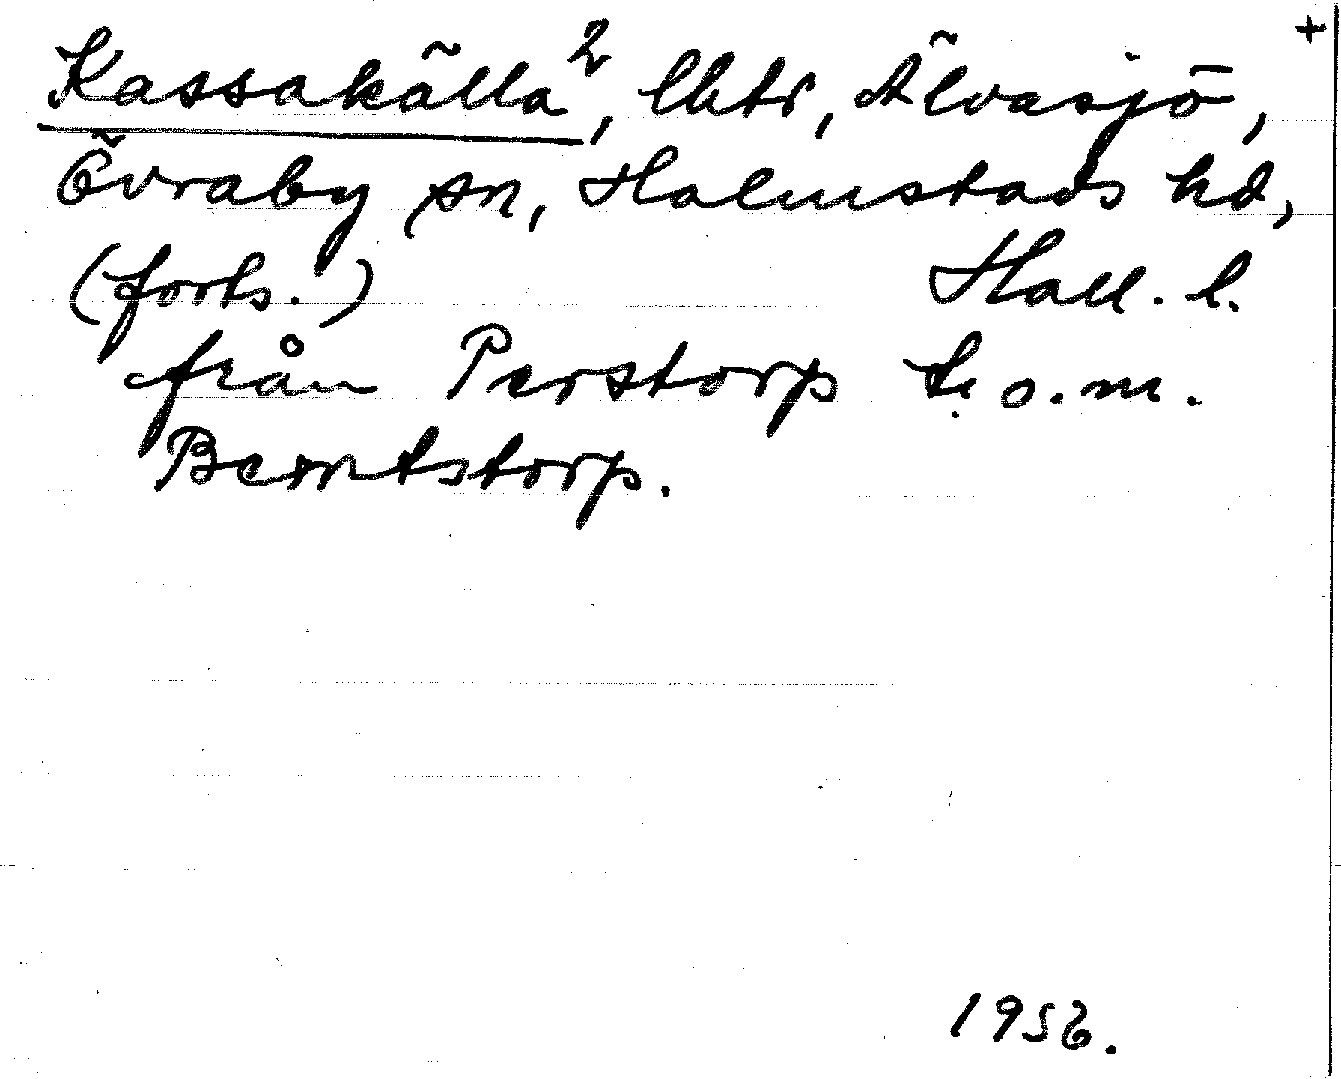 +
Kassakälla², lhtr, Älvasjö,
Övraby sn, Halmstads hd,
(forts.) Hall. l.
från Perstorp t.o.m.
Berntstorp.
1956.